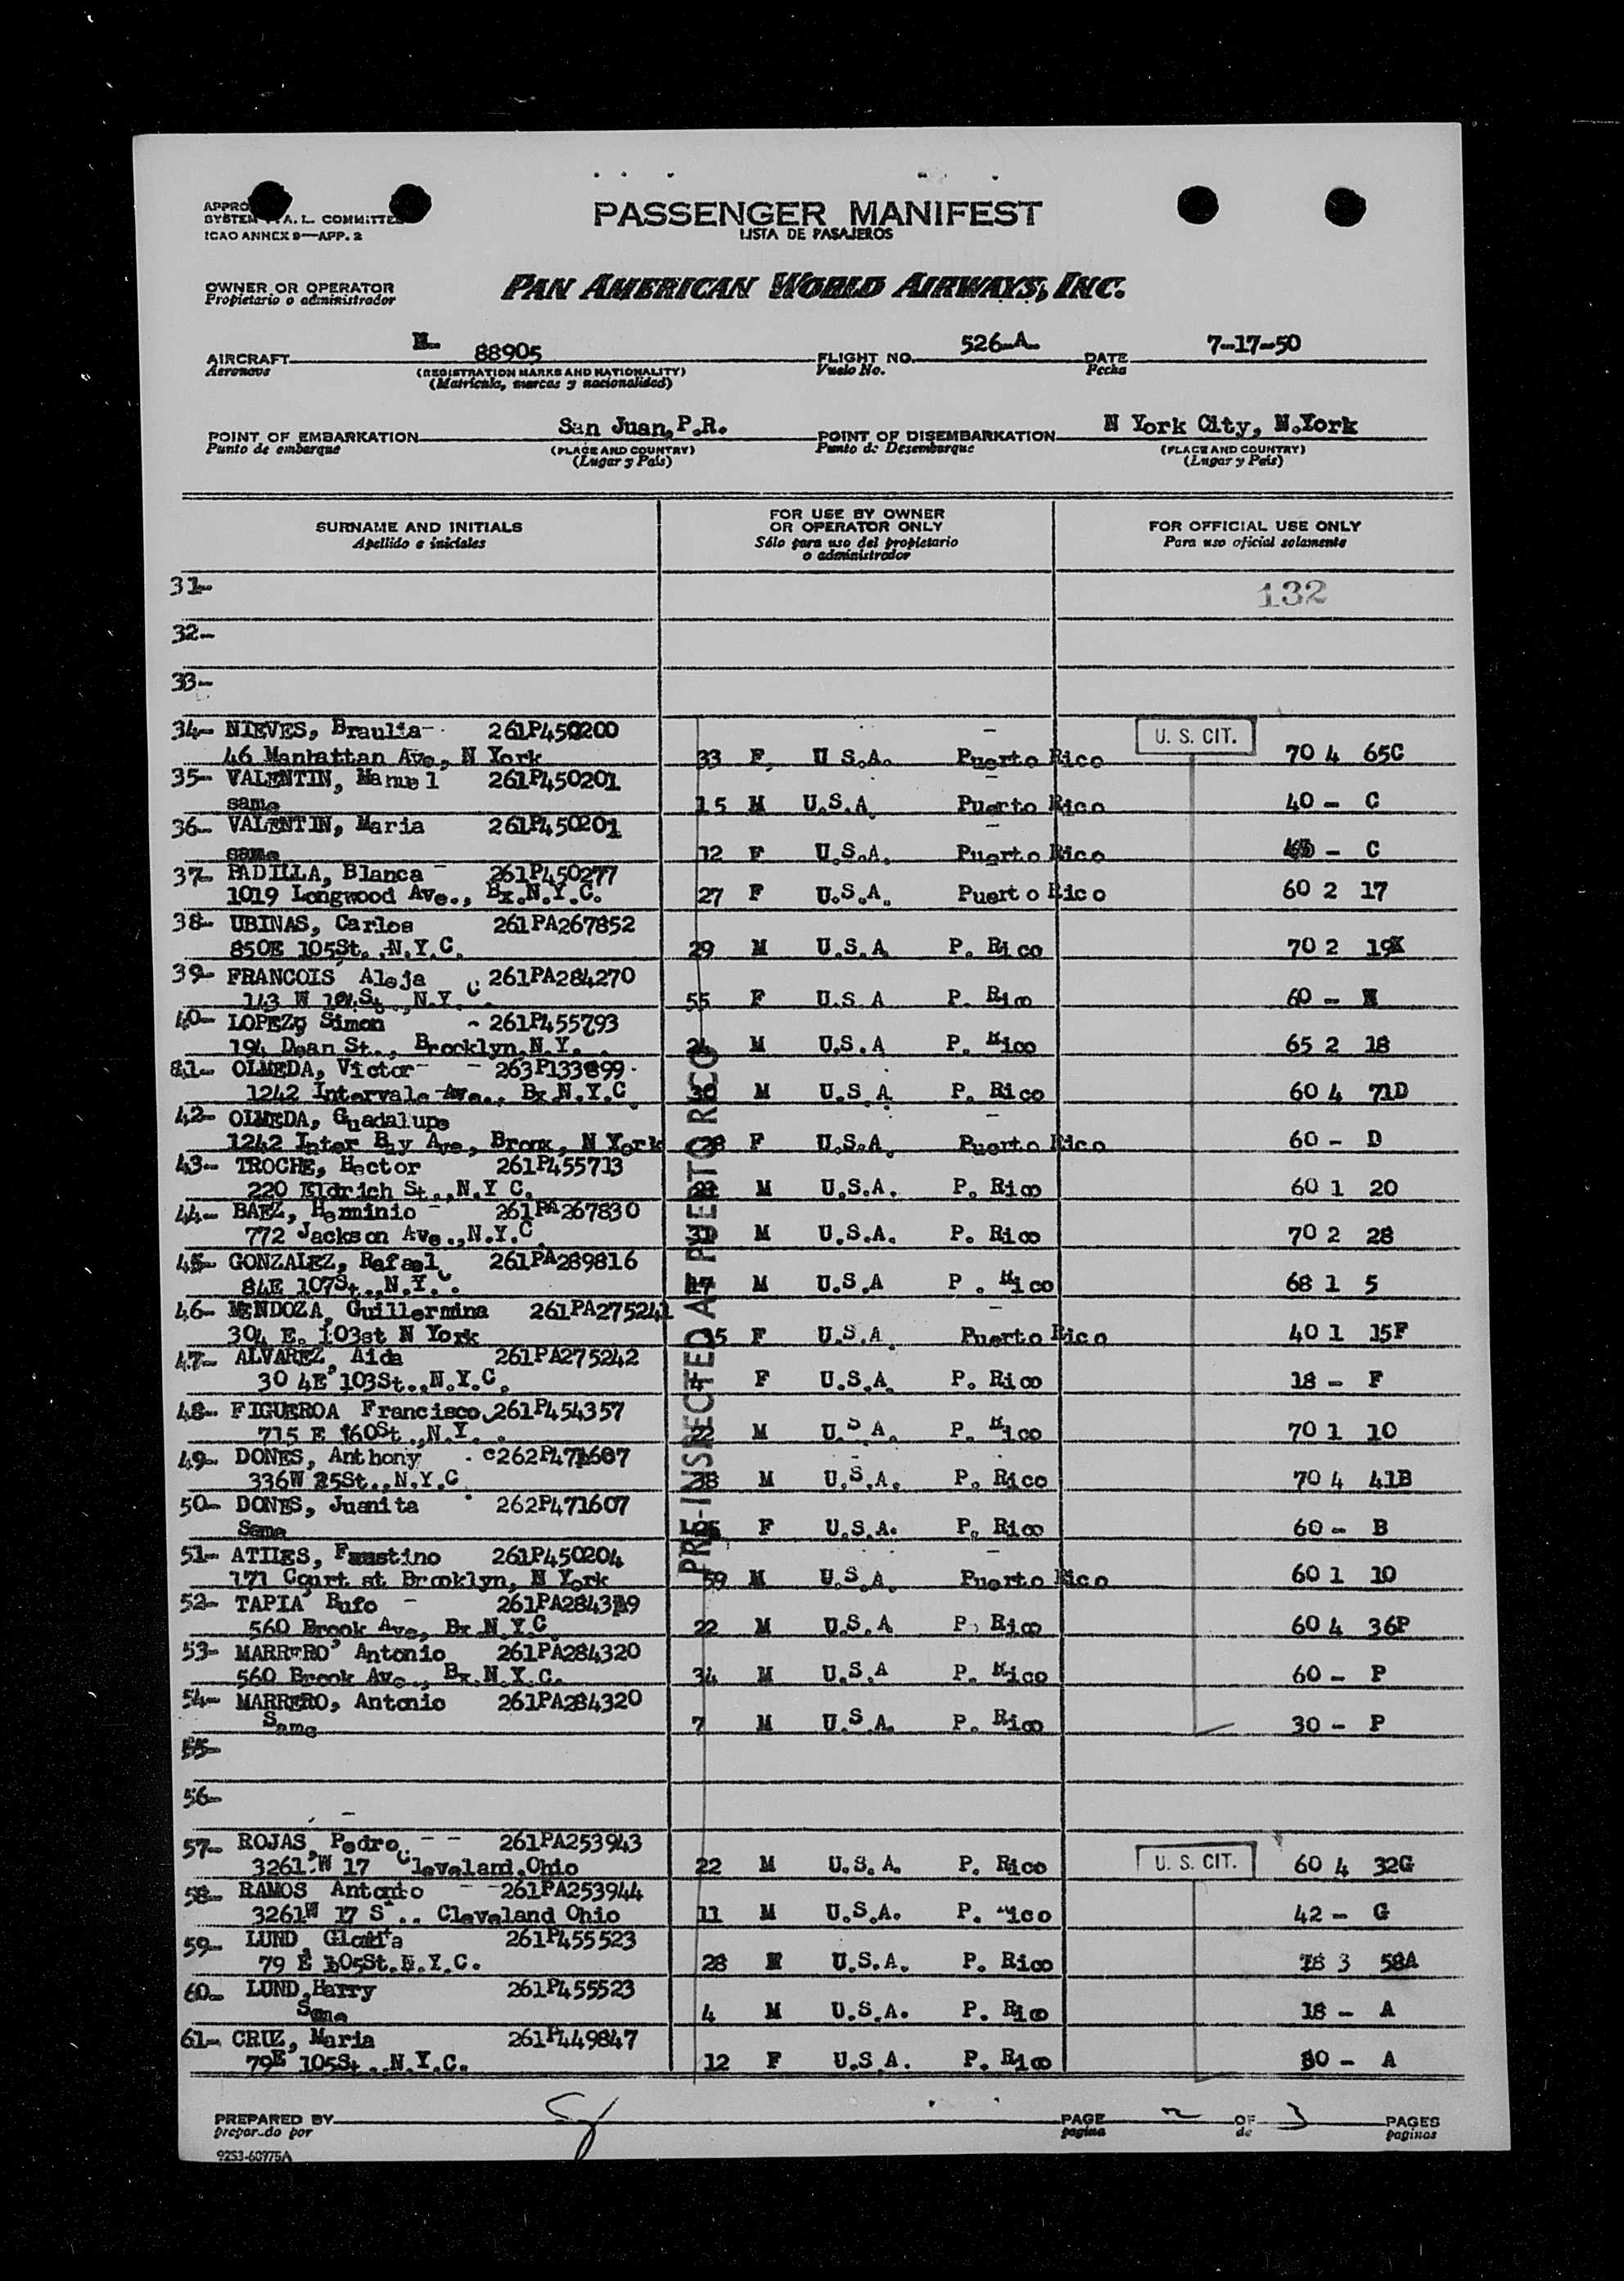 APPRO
SYSTEM A. L. COMMITTEE
ICAO ANNEX 9—APP. 2
PASSENGER MANIFEST
LISTA DE PASAJEROS
OWNER OR OPERATOR
Propietario o administrador
PAN AMERICAN WORLD AIRWAYS, INC.
AIRCRAFT N- 88905 FLIGHT NO. 526-A- DATE 7-17-50
Aeronave (REGISTRATION MARKS AND NATIONALITY) Vuelo No. Fecha
(Matrícula, marcas y nacionalidad)
POINT OF EMBARKATION San Juan, P.R. POINT OF DISEMBARKATION N York City, N.York
Punto de embarque (PLACE AND COUNTRY) Punto de Desembarque (PLACE AND COUNTRY)
(Lugar y País) (Lugar y País)
SURNAME AND INITIALS FOR USE BY OWNER OR OPERATOR ONLY FOR OFFICIAL USE ONLY
Apellido e iniciales Sólo para uso del propietario o administrador Para uso oficial solamente
31- 132
32-
33-
34- NIEVES, Braulia- 261P450200 U. S. CIT.
46 Manhattan Ave, N York 33 F, U S.A. Puerto Rico 70 4 65C
35- VALENTIN, Manuel 261P450201
same 15 M U.S.A Puerto Rico 40 - C
36- VALENTIN, Maria 261P450201
same 12 F U.S.A. Puerto Rico - C
37- PADILLA, Blanca 261P450277
1019 Longwood Ave., Bx.N.Y.C. 27 F U.S.A. Puerto Rico 60 2 17
38- UBINAS, Carlos 261PA267852
850E 105St. ,N.Y.C. 29 M U.S.A P. Rico 70 2 19
39- FRANCOIS Aleja 261PA284270
143 W St., N.Y.C. 55 F U.S.A P. Rico 60 -
40- LOPEZ, Simon - 261P455793
194 Dean St., Brooklyn,N.Y. M U.S.A P. Rico 65 2 18
OLMEDA, Victor- - 263P133899
1242 Intervale Ave., Bx.N.Y.C 30 M U.S.A. P. Rico 60 4 71D
42- OLMEDA, Guadalupe
1242 Inter Bay Ave, Bronx, N York 28 F U.S.A. Puerto Rico 60 - D
43- TROCHE, Hector 261P455713
220 Eldrich St.,N.Y C. M U.S.A. P. Rico 60 1 20
44- BAEZ, Herminio - 261PA267830
772 Jackson Ave.,N.Y.C. M U.S.A. P. Rico 70 2 28
45- GONZALEZ, Rafael 261PA289816
84E 107St.,N.Y.C. 17 M U.S.A P . Rico 68 1 5
46- MENDOZA, Guillermina 261PA275241
304 E. 103st N York F U.S.A. Puerto Rico 40 1 15F
47- ALVAREZ, Aida 261PA275242
30 4E 103St.,N.Y.C. F U.S.A. P. Rico 18 - F
48- FIGUEROA Francisco 261P454357
715 E 160St.,N.Y. . 22 M U.S A. P. Rico 70 1 10
49- DONES, Anthony 262P471607
336W 25St.,N.Y.C 38 M U.S.A. P. Rico 70 4 41B
50- DONES, Juanita 262P471607
Same F U.S.A. P. Rico 60 - B
51- ATILES, Faustino 261P450204
171 Court st Brooklyn, N York 59 M U.S.A. Puerto Rico 60 1 10
52- TAPIA Rufo - 261PA284319
560 Brook Ave, Bx N.Y.C. 22 M U.S.A P. Rico 60 4 36P
53- MARRERO Antonio 261PA284320
560 Brook Ave., Bx.N.Y.C. 34 M U.S.A P. Rico 60 - P
54- MARRERO, Antonio 261PA284320
Same 7 M U.S A. P. Rico 30 - P
55-
56-
57- ROJAS, Pedro - - 261PA253943
3261 W 17 Cleveland,Ohio 22 M U.S.A. P. Rico U. S. CIT. 60 4 32G
58- RAMOS Antonio - -261PA253944
3261W 17 S . . Cleveland Ohio 11 M U.S.A. P. Rico 42 - G
59- LUND, Gloria 261P455523
79 E 105St.N.Y.C. 28 U.S.A. P. Rico 3 58A
60- LUND,Harry 261P455523
Same 4 M U.S.A. P. Rico 18 - A
61- CRUZ, Maria 261P449847
79E 105St.,N.Y.C. 12 F U.S.A. P. Rico 80 - A
PRE-INSPECTED AT PUERTO RICO
PREPARED BY PAGE 2 OF 3 PAGES
preparado por pagina de paginas
9253-60775A